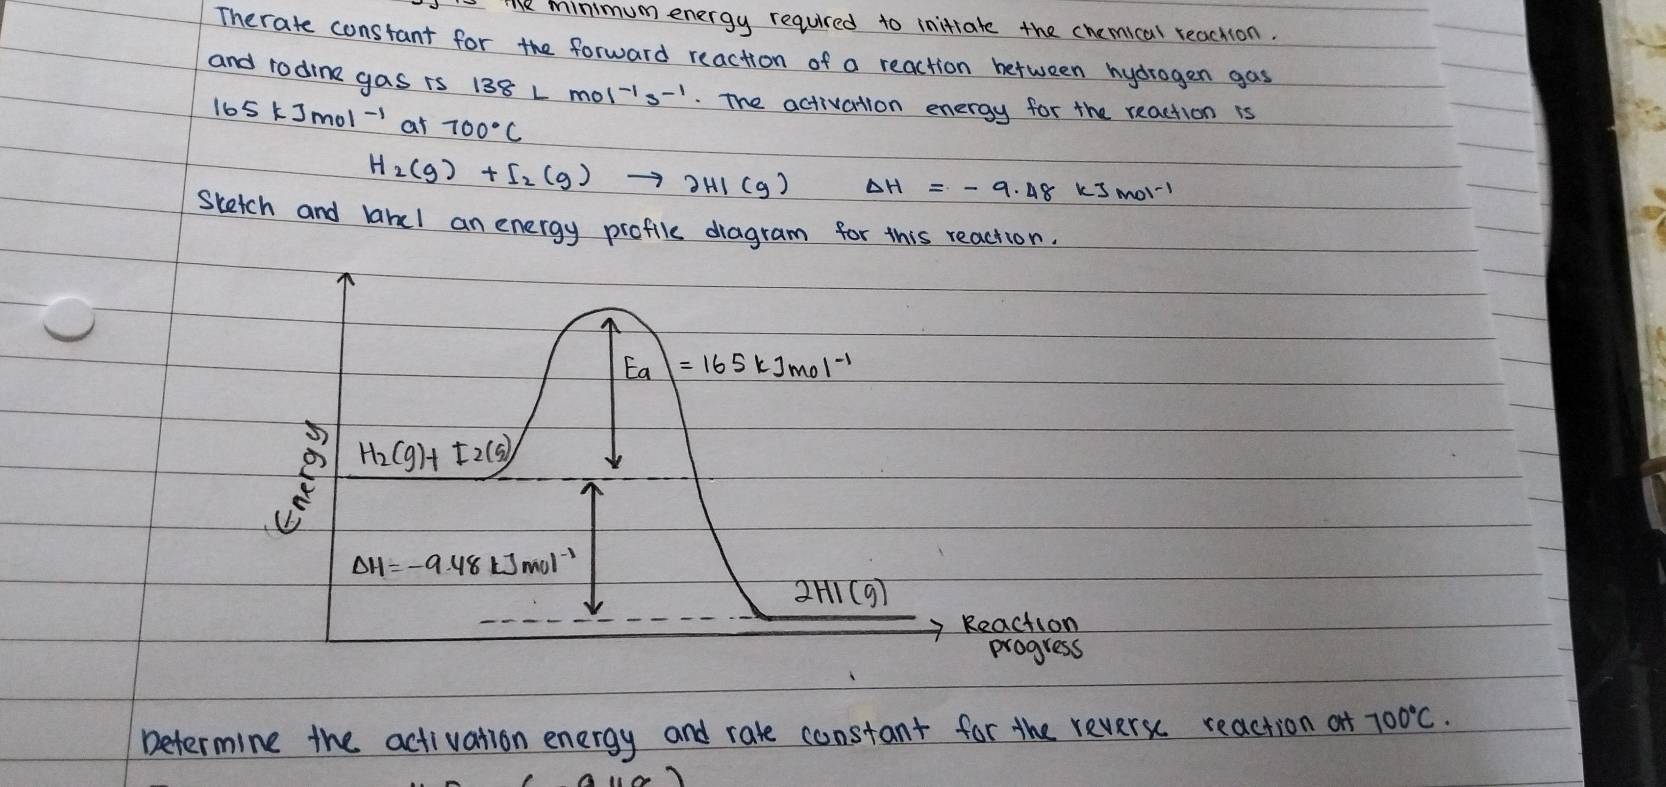 the minimum energy required to initiate the chemical reaction.
The rate constant for the forward reaction of a reaction between hydrogen gas
and iodine gas is 138 L mol⁻¹s⁻¹. The activation energy for the reaction is
165 kJmol⁻¹ at 700°C
H₂(g) + I₂(g) → 2HI(g) ΔH = - 9.48 kJmol⁻¹
Sketch and label an energy profile diagram for this reaction.
Ea = 165 kJmol⁻¹
H₂(g) + I₂(g)
Energy
ΔH = -9.48 kJmol⁻¹
2HI(g)
Reaction
progress
Determine the activation energy and rate constant for the reverse reaction at 700°C.